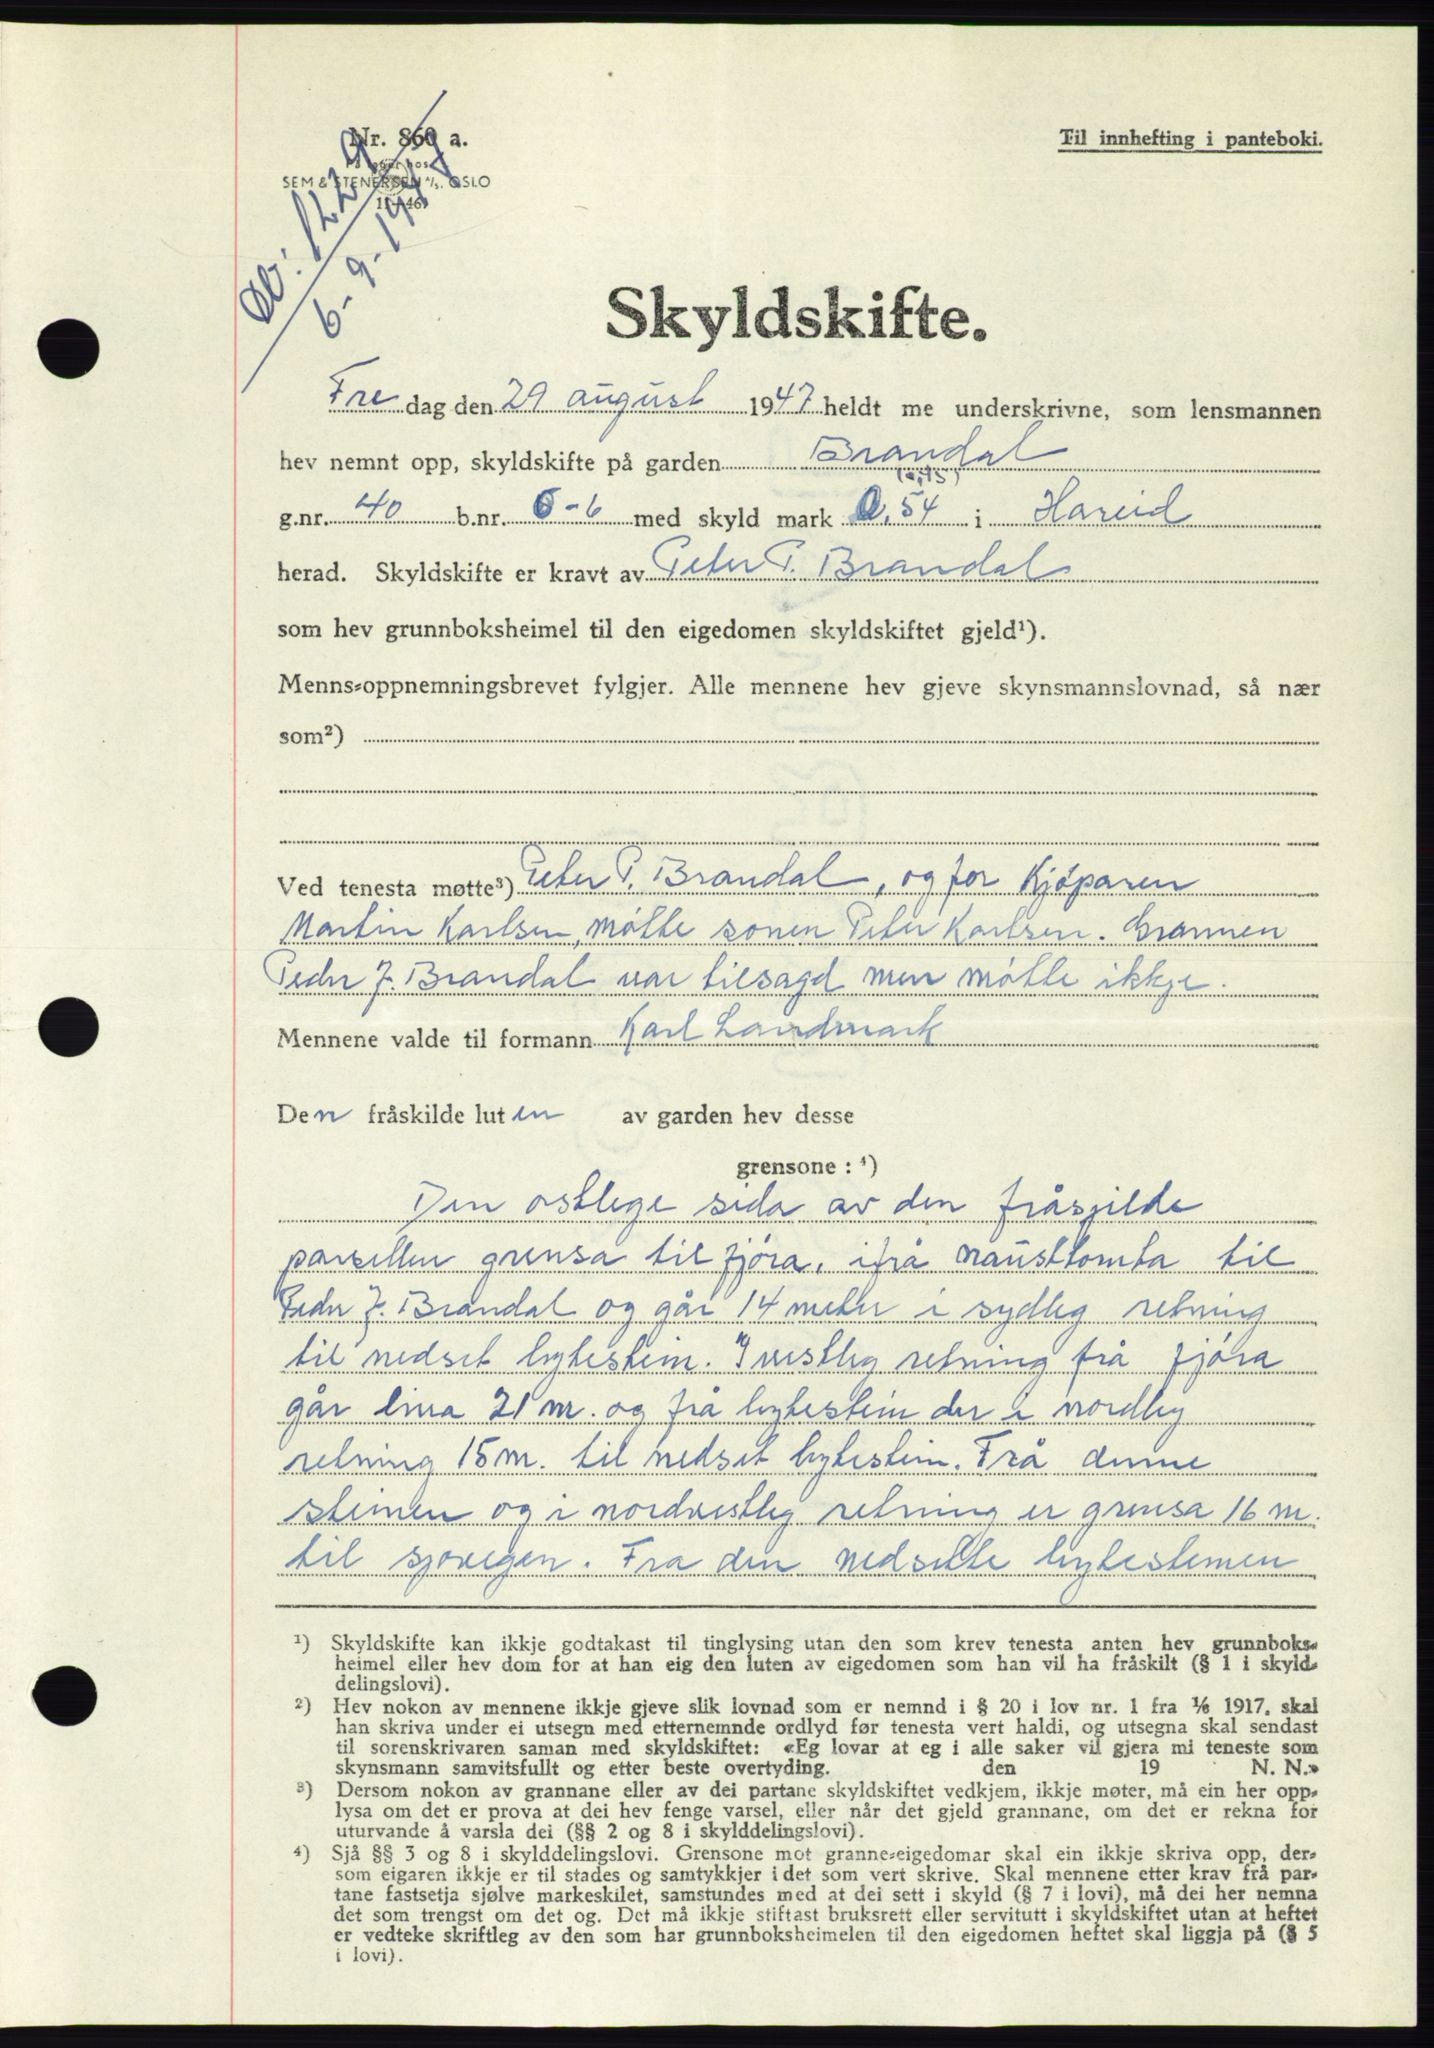 Nr. 860 a.
På lager hos
SEM & STENERSEN A/S. OSLO
11—46
Db. 1229
6-9-1947
Til innhefting i panteboki.
Skyldskifte.
Fredag den 29 august 1947 heldt me underskrivne, som lensmannen
hev nemnt opp, skyldskifte på garden Brandal
(0,15)
g.nr. 40 b.nr. 6-6 med skyld mark 0.54 i Hareid
herad. Skyldskifte er kravt av Peter P. Brandal
som hev grunnboksheimel til den eigedomen skyldskiftet gjeld¹).
Menns-oppnemningsbrevet fylgjer. Alle mennene hev gjeve skynsmannslovnad, så nær
som²)
Ved tenesta møtte³) Peter P. Brandal, og for Kjøparen
Martin Karlsen, møtte sonen Peter Karlsen. Grannen
Peder J. Brandal var tilsagd men møtte ikkje.
Mennene valde til formann Karl Landmark
Den fråskilde luten av garden hev desse
grensone : ⁴)
Den østlege sida av den fråsjilde
parsellen grensa til fjøra, ifrå nausttomta til
Peder J. Brandal og går 14 meter i sydleg retning
til nedset bytestein. I vestleg retning frå fjøra
går lina 21 m. og frå bytestein der i nordleg
retning 15 m. til nedset bytestein. Frå denne
steinen og i nordvestleg retning er grensa 16 m.
til sjøvegen. Fra den nedsette bytesteinen
¹) Skyldskifte kan ikkje godtakast til tinglysing utan den som krev tenesta anten hev grunnboks-
heimel eller hev dom for at han eig den luten av eigedomen som han vil ha fråskilt (§ 1 i skyld-
delingslovi).
²) Hev nokon av mennene ikkje gjeve slik lovnad som er nemnd i § 20 i lov nr. 1 fra ¹/₆ 1917, skal
han skriva under ei utsegn med etternemnde ordlyd før tenesta vert haldi, og utsegna skal sendast
til sorenskrivaren saman med skyldskiftet: «Eg lovar at eg i alle saker vil gjera mi teneste som
skynsmann samvitsfullt og etter beste overtyding. den 19 N. N.»
³) Dersom nokon av grannane eller av dei partane skyldskiftet vedkjem, ikkje møter, må ein her opp-
lysa om det er prova at dei hev fenge varsel, eller når det gjeld grannane, om det er rekna for
uturvande å varsla dei (§§ 2 og 8 i skylddelingslovi).
⁴) Sjå §§ 3 og 8 i skylddelingslovi. Grensone mot granne-eigedomar skal ein ikkje skriva opp, der-
som eigaren ikkje er til stades og samtykkjer i det som vert skrive. Skal mennene etter krav frå par-
tane fastsetja sjølve markeskilet, samstundes med at dei sett i skyld (§ 7 i lovi), må dei her nemna
det som trengst om det og. Det må ikkje stiftast bruksrett eller servitutt i skyldskiftet utan at heftet
er vedteke skriftleg av den som har grunnboksheimelen til den eigedomen heftet skal liggja på (§ 5
i lovi).